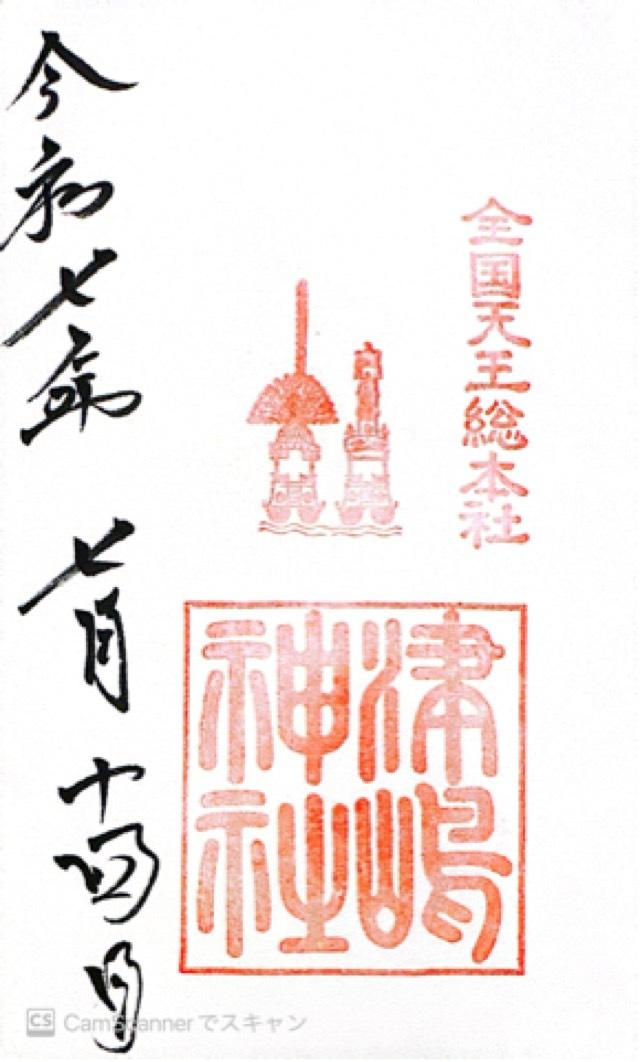 全国天王総本社
津嶋神社
令和七年 七月 十四日
CS CamScanner でスキャン